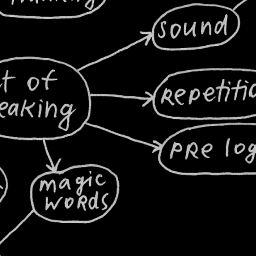 sound
t of
eaking
repetitio
pre log
magic
words